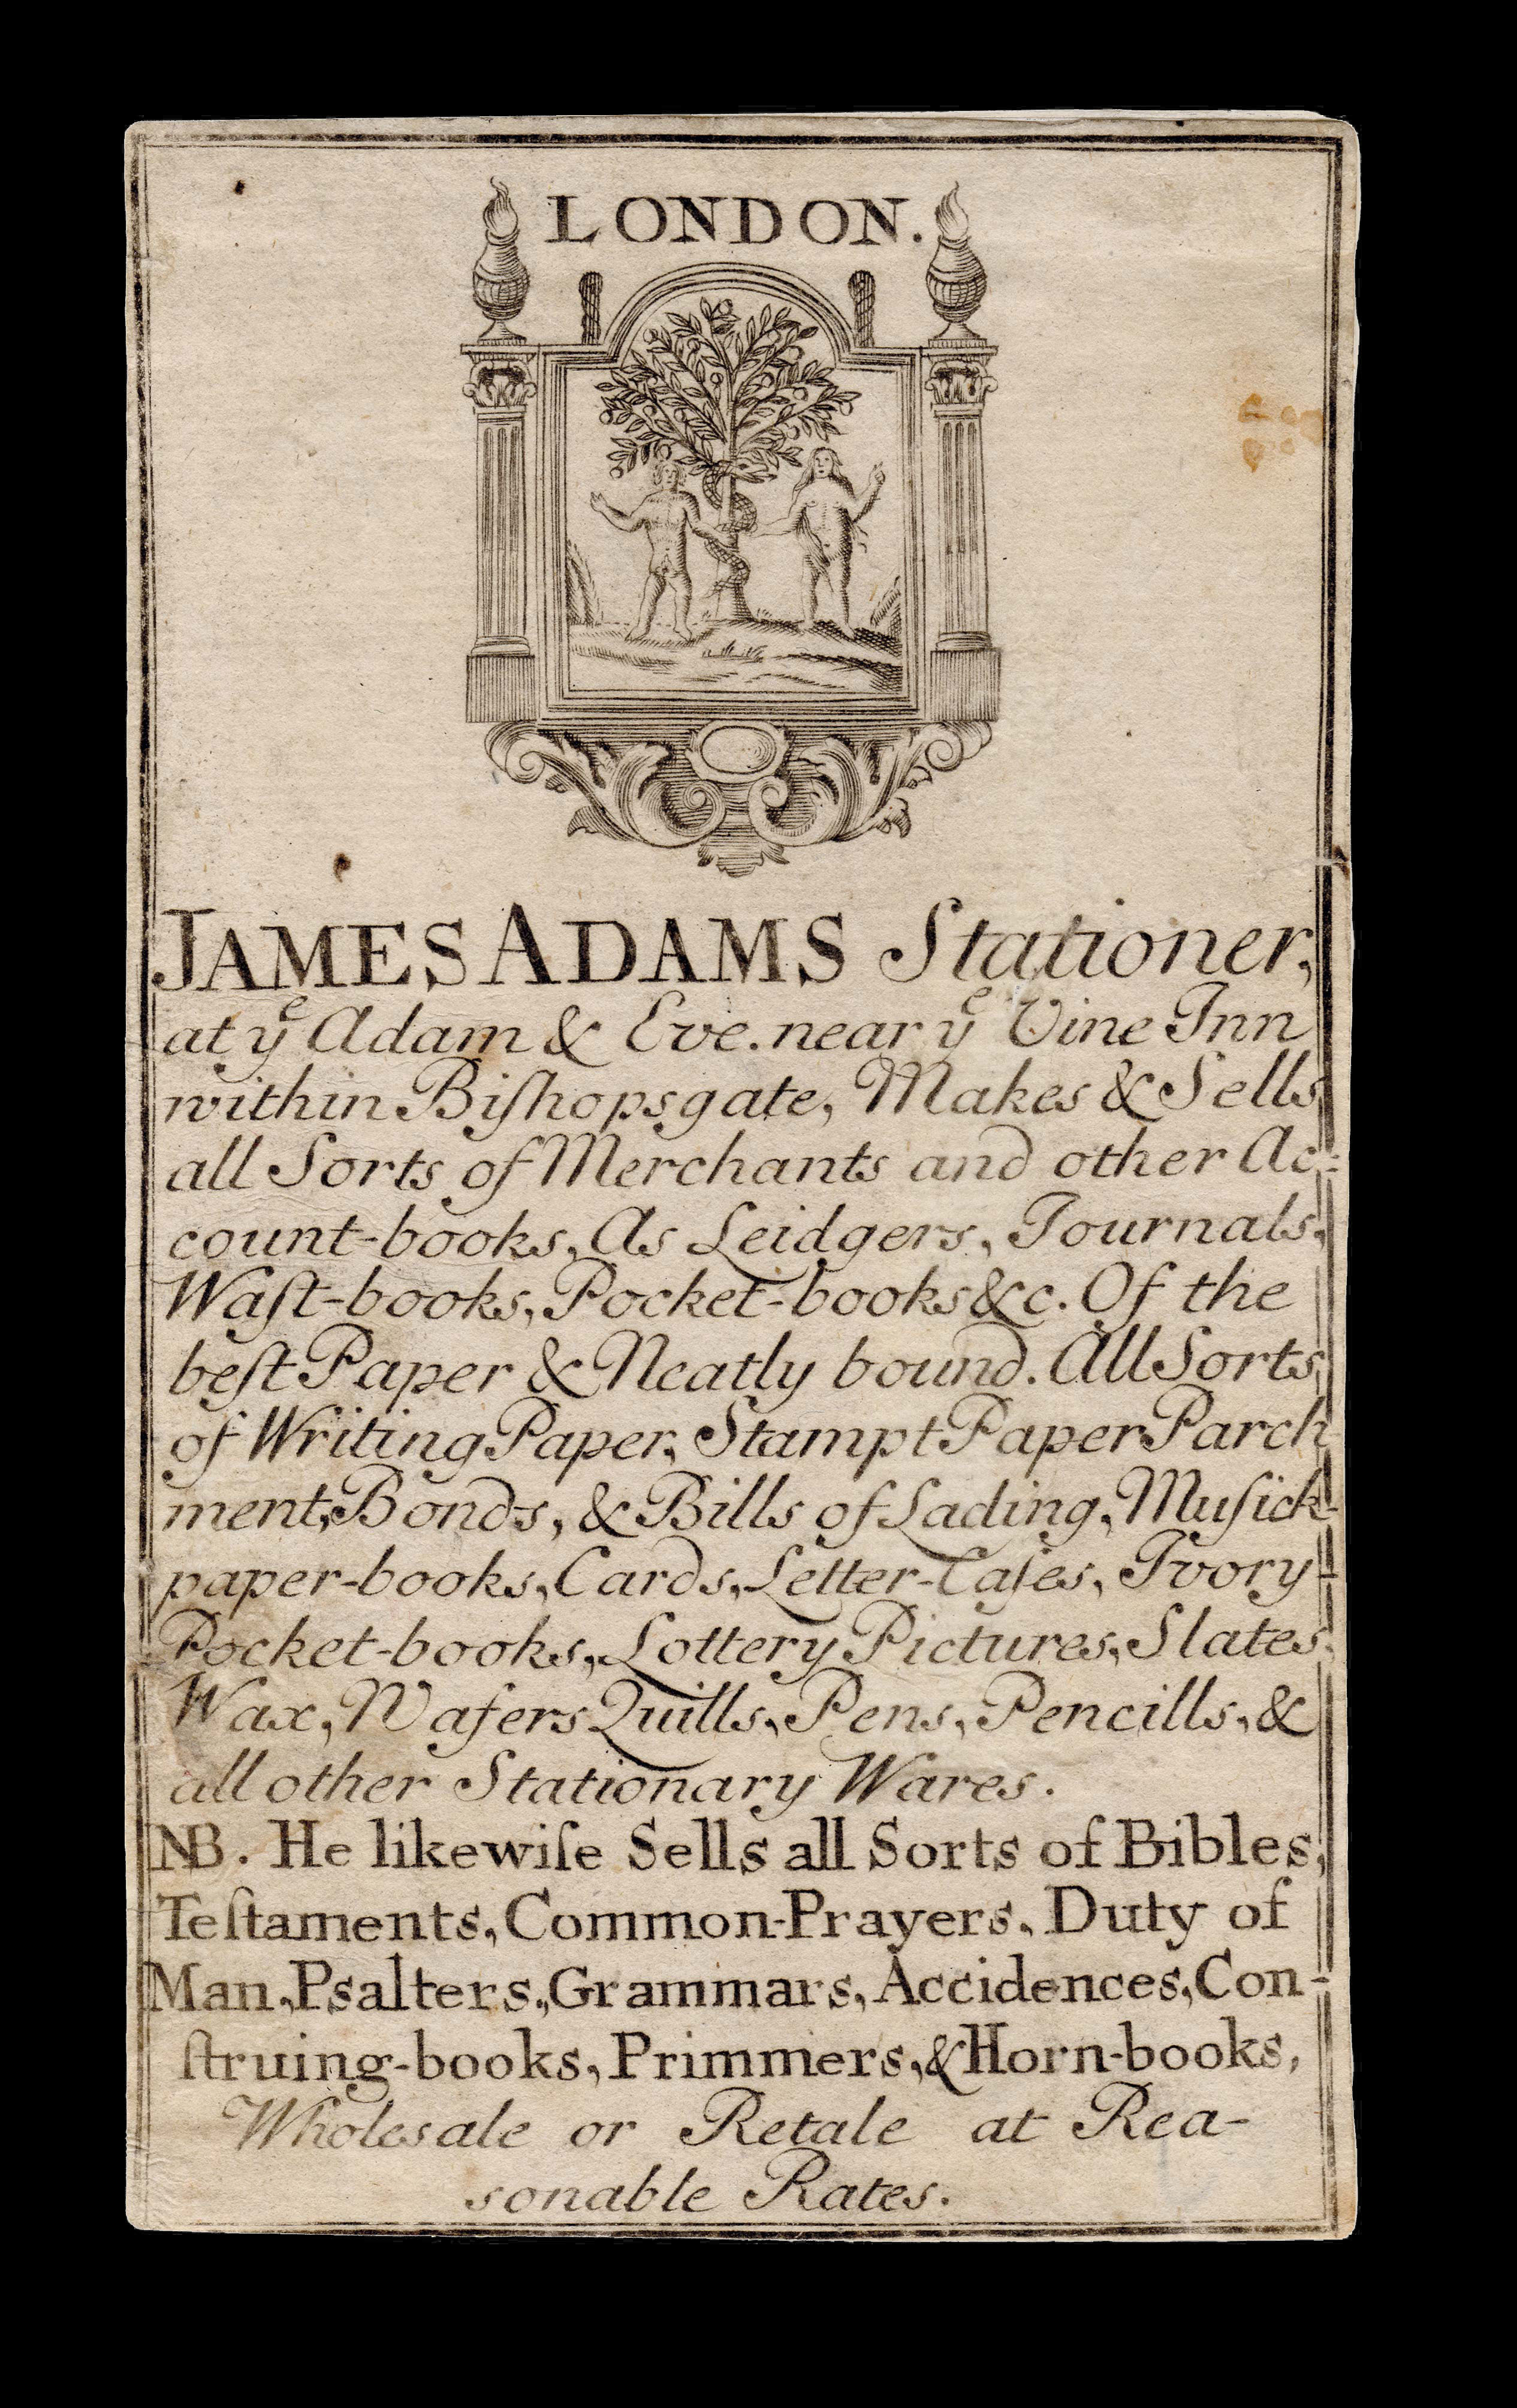 LONDON.
JAMES ADAMS Stationer,
at yᵉ Adam & Eve. near yᵉ Vine Inn
within Biſhopsgate, Makes & Sells
all Sorts of Merchants and other Ac-
count-books, As Leidgers, Journals,
Waſt-books, Pocket-books &c. Of the
beſt Paper & Neatly bound. All Sorts
of Writing Paper, Stampt Paper Parch
ment, Bonds, & Bills of Lading, Muſick-
paper-books, Cards, Letter-Caſes, Ivory-
Pocket-books, Lottery Pictures, Slates,
Wax, Wafers Quills, Pens, Pencills, &
all other Stationary Wares.
NB. He likewiſe Sells all Sorts of Bibles,
Teſtaments, Common-Prayers, Duty of
Man, Psalters, Grammars, Accidences, Con-
ſtruing-books, Primmers, & Horn-books,
Wholesale or Retale at Rea-
sonable Rates.